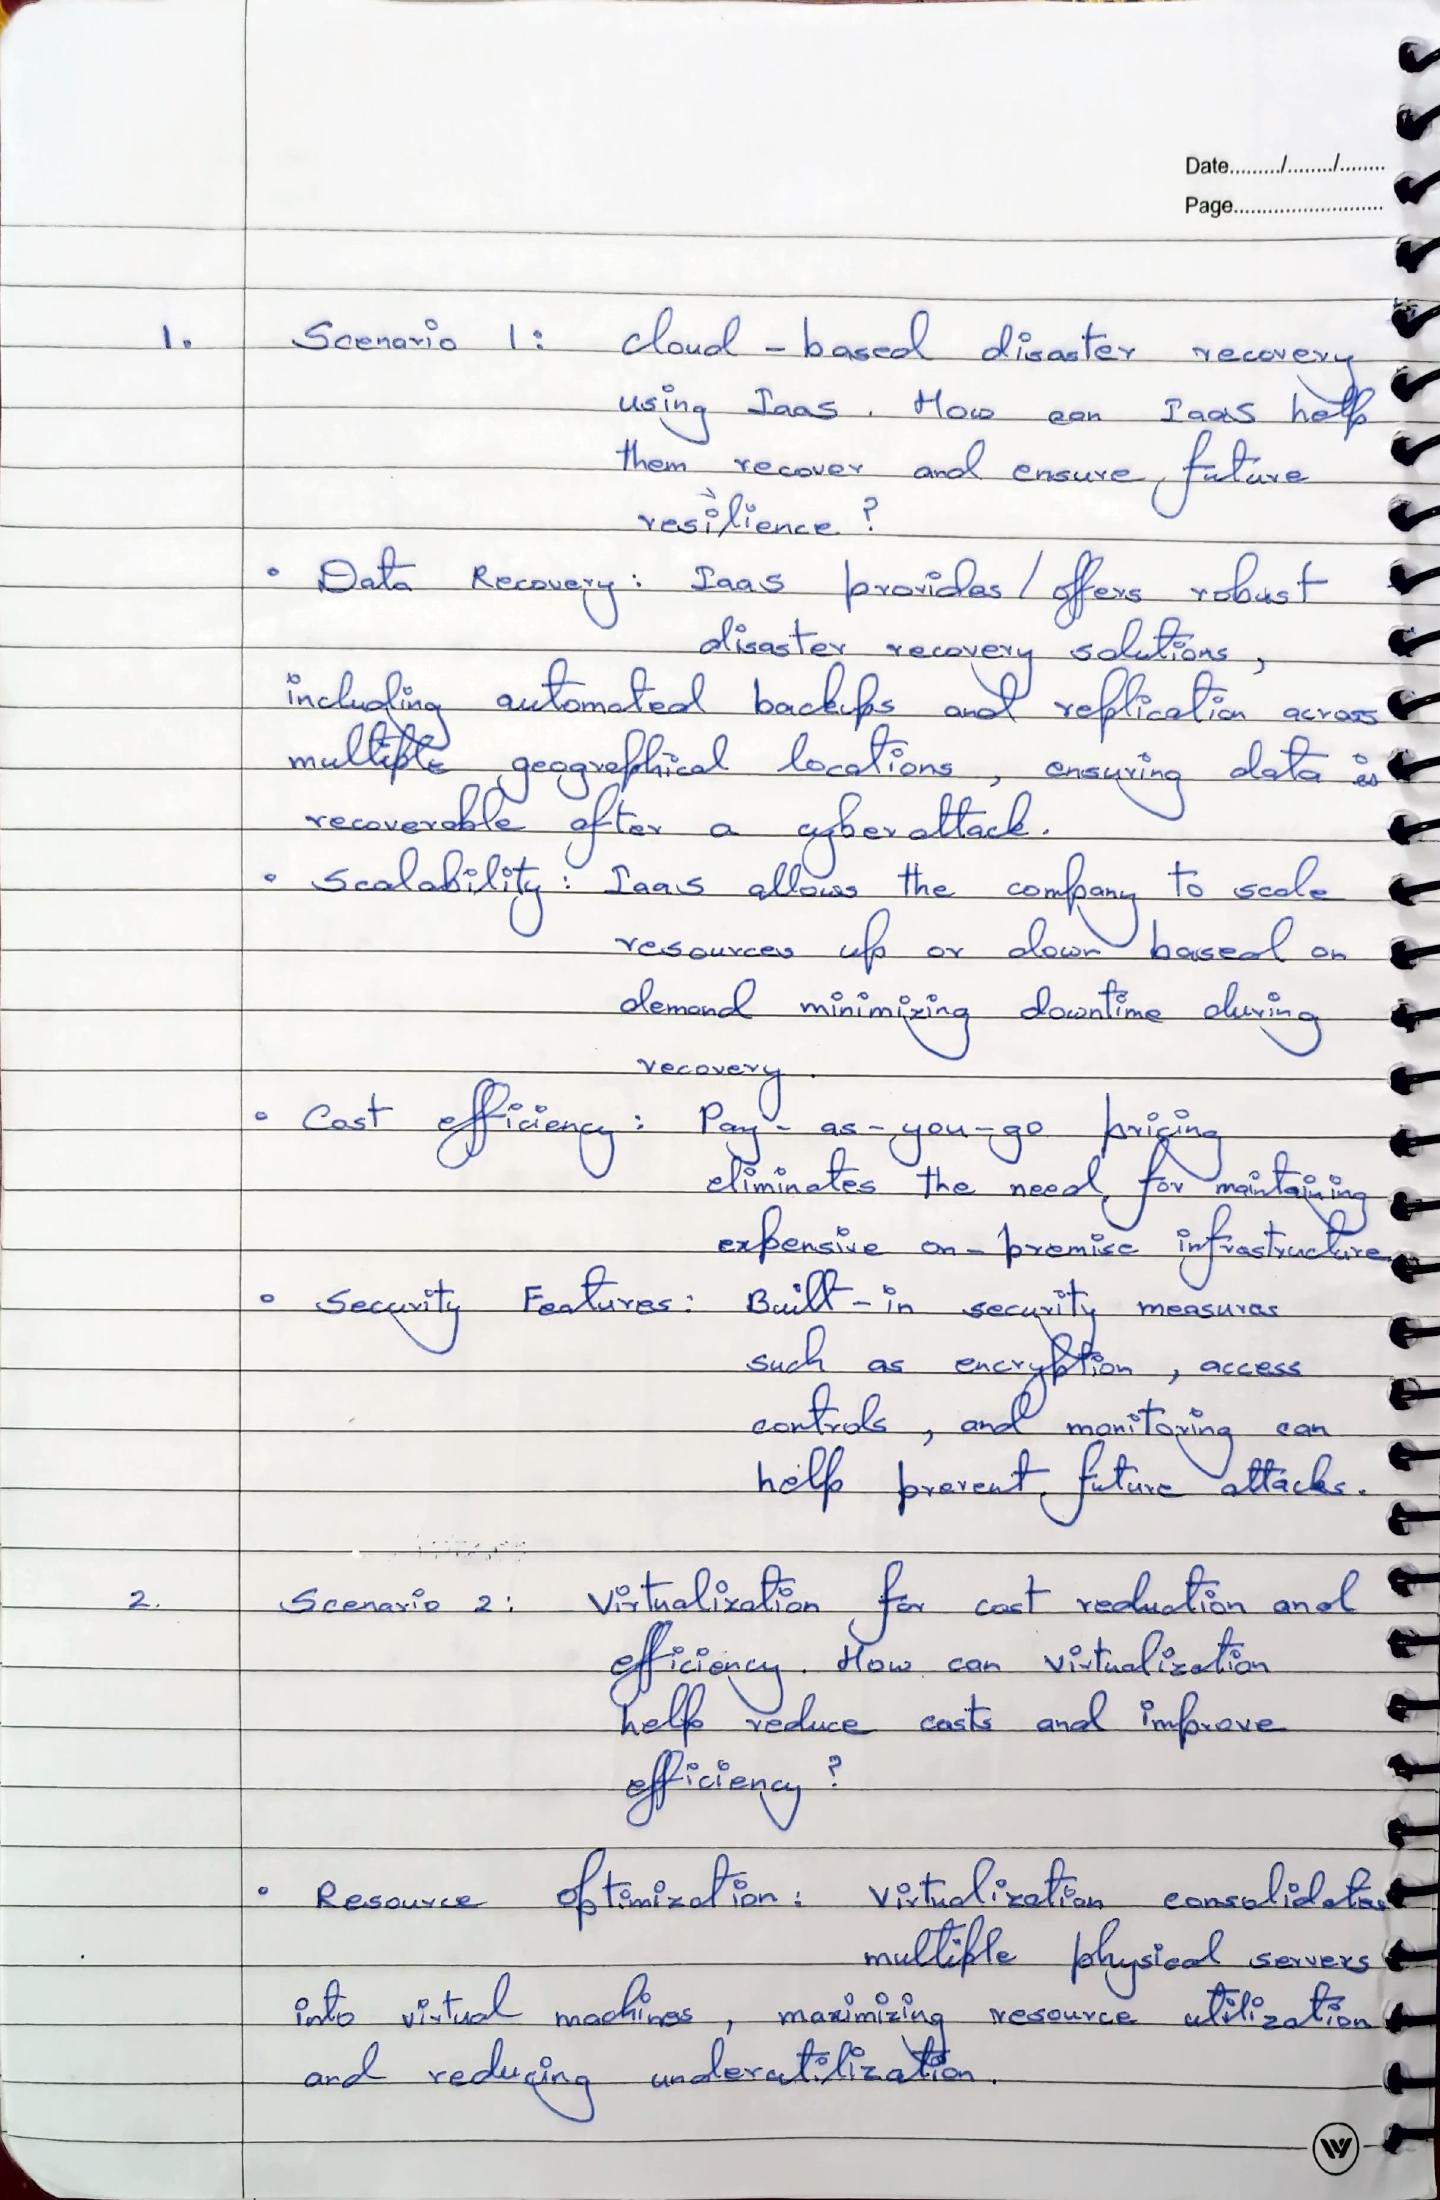 Date......../......../........
Page...........................
1. Scenario 1: cloud-based disaster recovery
using IaaS. How can IaaS help
them recover and ensure future
resilience?
• Data Recovery: IaaS provides/offers robust
disaster recovery solutions,
including automated backups and replication across
multiple geographical locations, ensuring data is
recoverable after a cyberattack.
• Scalability: IaaS allows the company to scale
resources up or down based on
demand minimizing downtime during
recovery.
• Cost efficiency: Pay-as-you-go pricing
eliminates the need for maintaining
expensive on-premise infrastructure.
• Security Features: Built-in security measures
such as encryption, access
controls, and monitoring can
help prevent future attacks.
2. Scenario 2: Virtualization for cost reduction and
efficiency. How can virtualization
help reduce costs and improve
efficiency?
• Resource optimization: Virtualization consolidates
multiple physical servers
into virtual machines, maximizing resource utilization
and reducing underutilization.
W